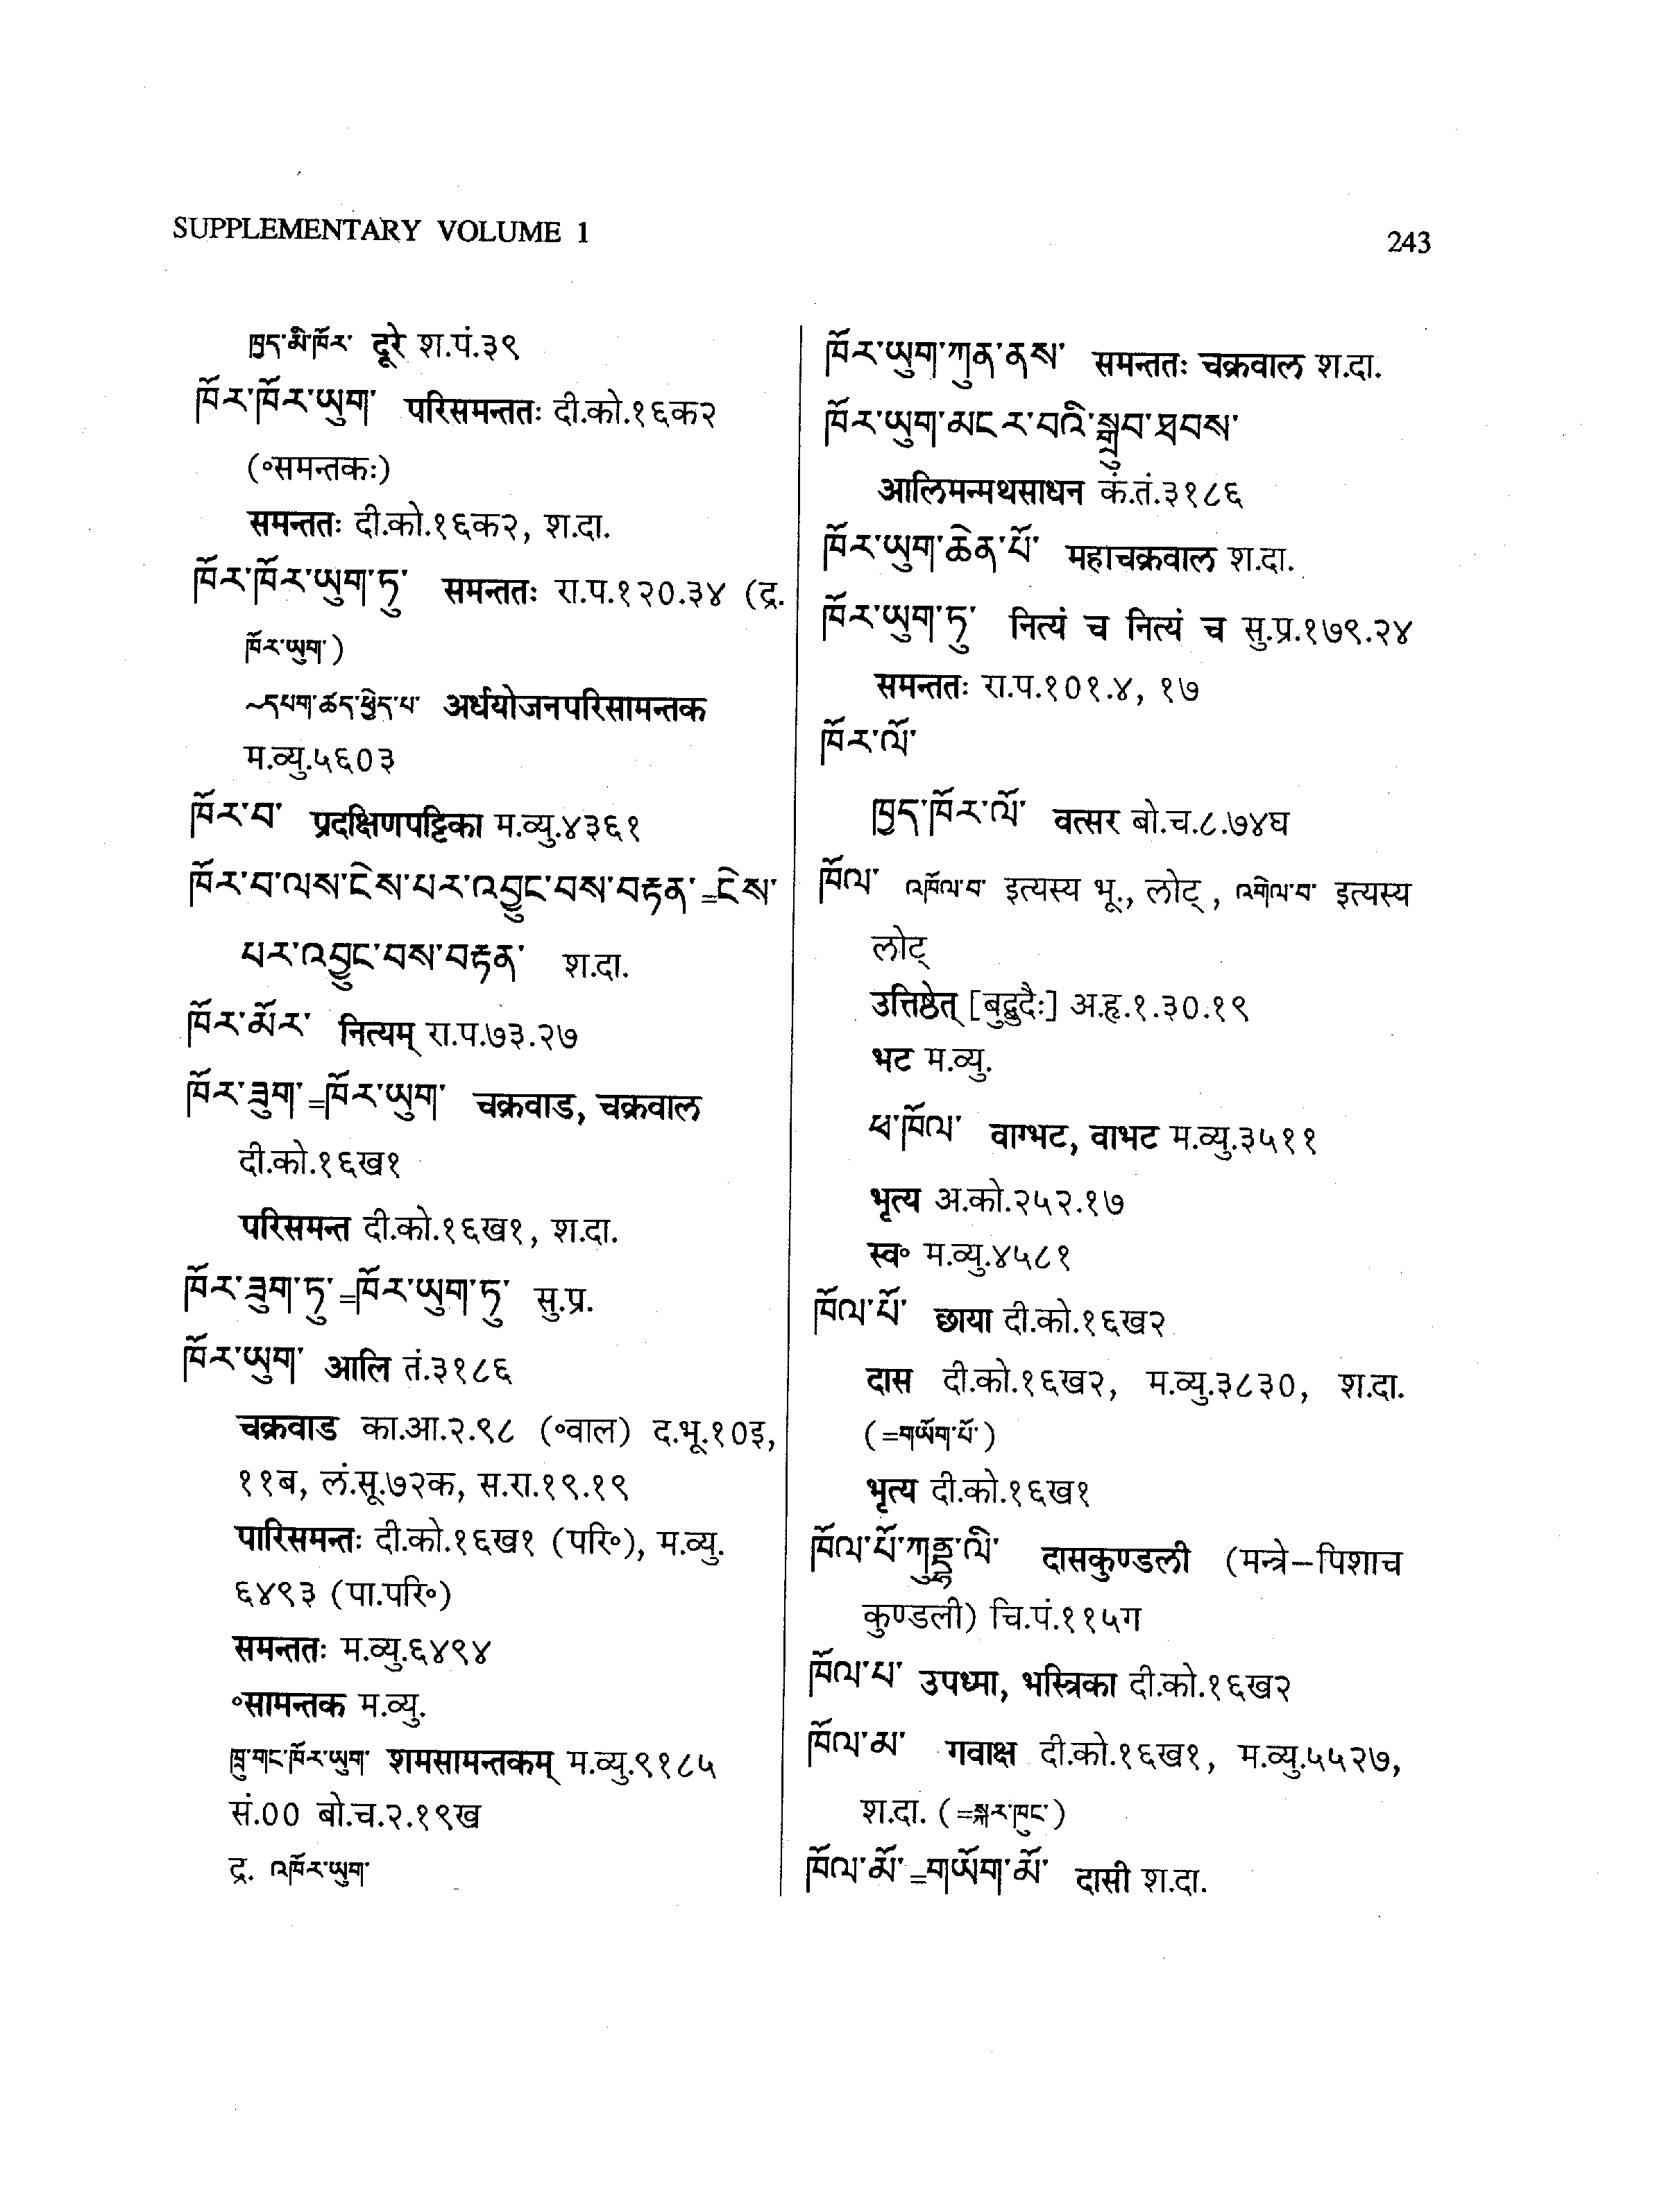 SUPPLEMENTARY VOLUME 1
243
ཁྱད་མི་ཁོར་ दूरे श.पं.३९
ཁོར་ཁོར་ཡུག་ परिसमन्ततः दी.को.१६क२
(॰समन्तकः)
समन्ततः दी.को.१६क२, श.दा.
ཁོར་ཁོར་ཡུག་ཏུ་ समन्ततः रा.प.१२०.३४ (द्र.
ཁོར་ཡུག་)
~དཔག་ཚད་ཕྱེད་པ་ अर्धयोजनपरिसामन्तक
म.व्यु.५६०३
ཁོར་བ་ प्रदक्षिणपट्टिका म.व्यु.४३६१
ཁོར་བ་ལས་ངེས་པར་འབྱུང་བས་བརྟན་=ངེས་
པར་འབྱུང་བས་བརྟན་ श.दा.
ཁོར་མོར་ नित्यम् रा.प.७३.२७
ཁོར་ཟུག་=ཁོར་ཡུག་ चक्रवाड, चक्रवाल
दी.को.१६ख१
परिसमन्त दी.को.१६ख१, श.दा.
ཁོར་ཟུག་ཏུ་=ཁོར་ཡུག་ཏུ་ सु.प्र.
ཁོར་ཡུག་ आलि तं.३१८६
चक्रवाड का.आ.२.९८ (॰वाल) द.भू.१०इ,
११ब, लं.सू.७२क, स.रा.१९.१९
पारिसमन्तः दी.को.१६ख१ (परि॰), म.व्यु.
६४९३ (पा.परि॰)
समन्ततः म.व्यु.६४९४
॰सामन्तक म.व्यु.
ཁྲུ་གང་ཁོར་ཡུག་ शमसामन्तकम् म.व्यु.९१८५
सं.०० बो.च.२.१९ख
द्र. འཁོར་ཡུག་
ཁོར་ཡུག་ཀུན་ནས་ समन्ततः चक्रवाल श.दा.
ཁོར་ཡུག་མངར་བའི་སྒྲུབ་ཐབས་
आलिमन्मथसाधन कं.तं.३१८६
ཁོར་ཡུག་ཆེན་པོ་ महाचक्रवाल श.दा.
ཁོར་ཡུག་ཏུ་ नित्यं च नित्यं च सु.प्र.१७९.२४
समन्ततः रा.प.१०१.४, १७
ཁོར་ལོ་
ཁྱད་ཁོར་ལོ་ वत्सर बो.च.८.७४घ
ཁོལ་ འཁོལ་བ་ इत्यस्य भू., लोट्, འགེལ་བ་ इत्यस्य
लोट्
उत्तिष्ठेत् [बुद्बुदैः] अ.हृ.१.३०.१९
भट म.व्यु.
ཕ་ཁོལ་ वाग्भट, वाभट म.व्यु.३५११
भृत्य अ.को.२५२.१७
स्व॰ म.व्यु.४५८१
ཁོལ་པོ་ छाया दी.को.१६ख२
दास दी.को.१६ख२, म.व्यु.३८३०, श.दा.
(=གཡོག་པོ་)
भृत्य दी.को.१६ख१
ཁོལ་པོ་ཀུཎྜ་ལི་ दासकुण्डली (मन्त्रे–पिशाच
कुण्डली) चि.पं.११५ग
ཁོལ་པ་ उपध्मा, भस्त्रिका दी.को.१६ख२
ཁོལ་མ་ गवाक्ष दी.को.१६ख१, म.व्यु.५५२७,
श.दा. (=སྐར་ཁུང་)
ཁོལ་མོ་=གཡོག་མོ་ दासी श.दा.